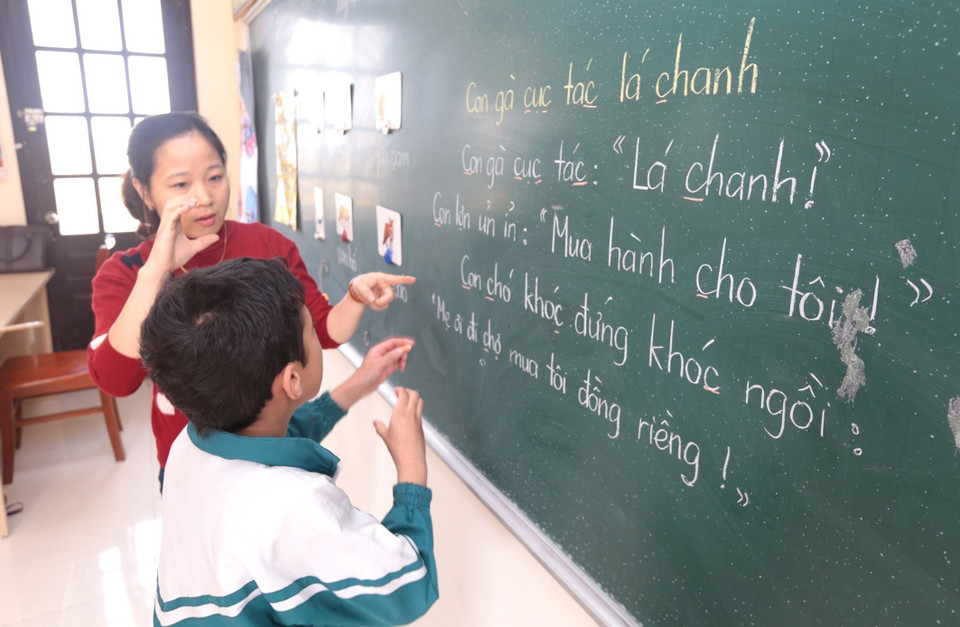 Con gà cục tác lá chanh
Con gà cục tác: "Lá chanh!"
Con lợn ủn ỉn: "Mua hành cho tôi!"
Con chó khóc đứng khóc ngồi:
"Mẹ ơi đi chợ mua tôi đồng riềng!"